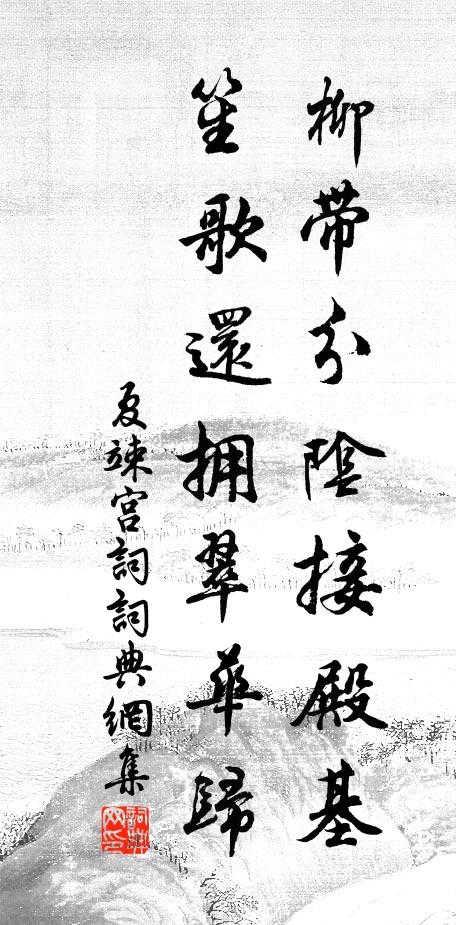 柳帶分陰接殿基
笙歌還拥翠華歸
夏竦宫詞詞典網集